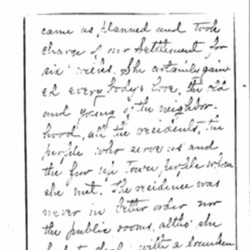 came as planned and took
charge of our Settlement for
six weeks. She certainly gain-
ed everybody's love, the old
and young of the neighbor-
hood, all the residents, the
people who serve us and
the few up town people whom
she met. The residence was
never in better order nor
the public rooms, altho' she
had to deal with a